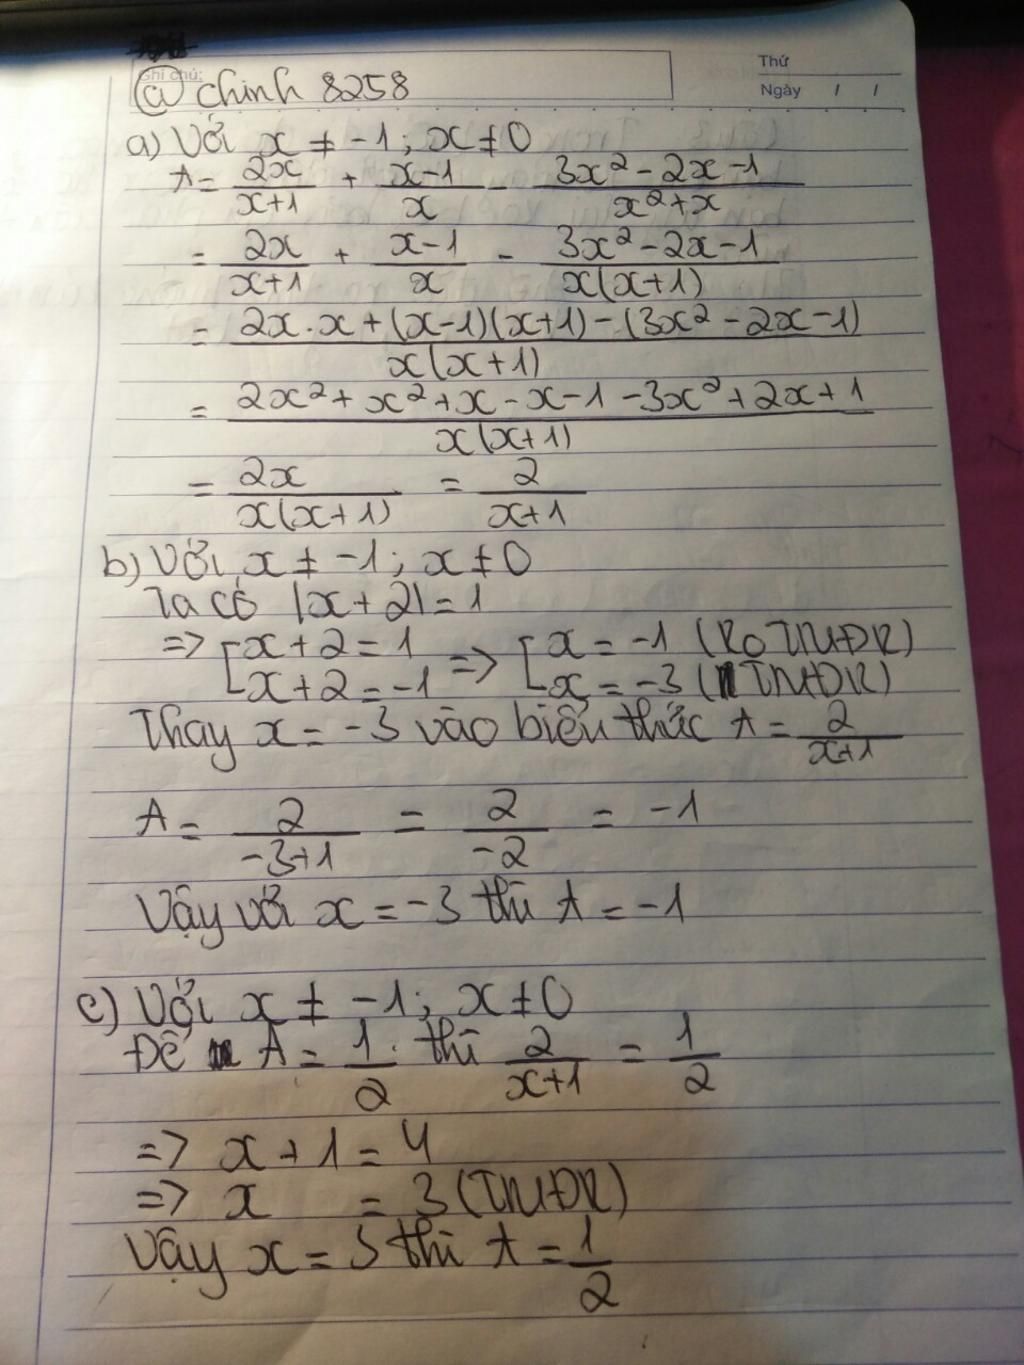 Ghi chú:
Thứ
Ngày / /
@ chinh 8258
a) Với x ≠ -1; x ≠ 0
A = 2x/(x+1) + (x-1)/x - (3x² - 2x - 1)/(x² + x)
= 2x/(x+1) + (x-1)/x - (3x² - 2x - 1)/(x(x+1))
= (2x.x + (x-1)(x+1) - (3x² - 2x - 1))/(x(x+1))
= (2x² + x² + x - x - 1 - 3x² + 2x + 1)/(x(x+1))
= 2x/(x(x+1)) = 2/(x+1)
b) Với x ≠ -1; x ≠ 0
Ta có |x+2| = 1
=> [x+2 = 1 => [x = -1 (Ko TMĐK)
[x+2 = -1 [x = -3 (TMĐK)
Thay x = -3 vào biểu thức A = 2/(x+1)
A = 2/(-3+1) = 2/(-2) = -1
Vậy với x = -3 thì A = -1
c) Với x ≠ -1; x ≠ 0
Để A = 1/2 thì 2/(x+1) = 1/2
=> x + 1 = 4
=> x = 3 (TMĐK)
Vậy x = 3 thì A = 1/2